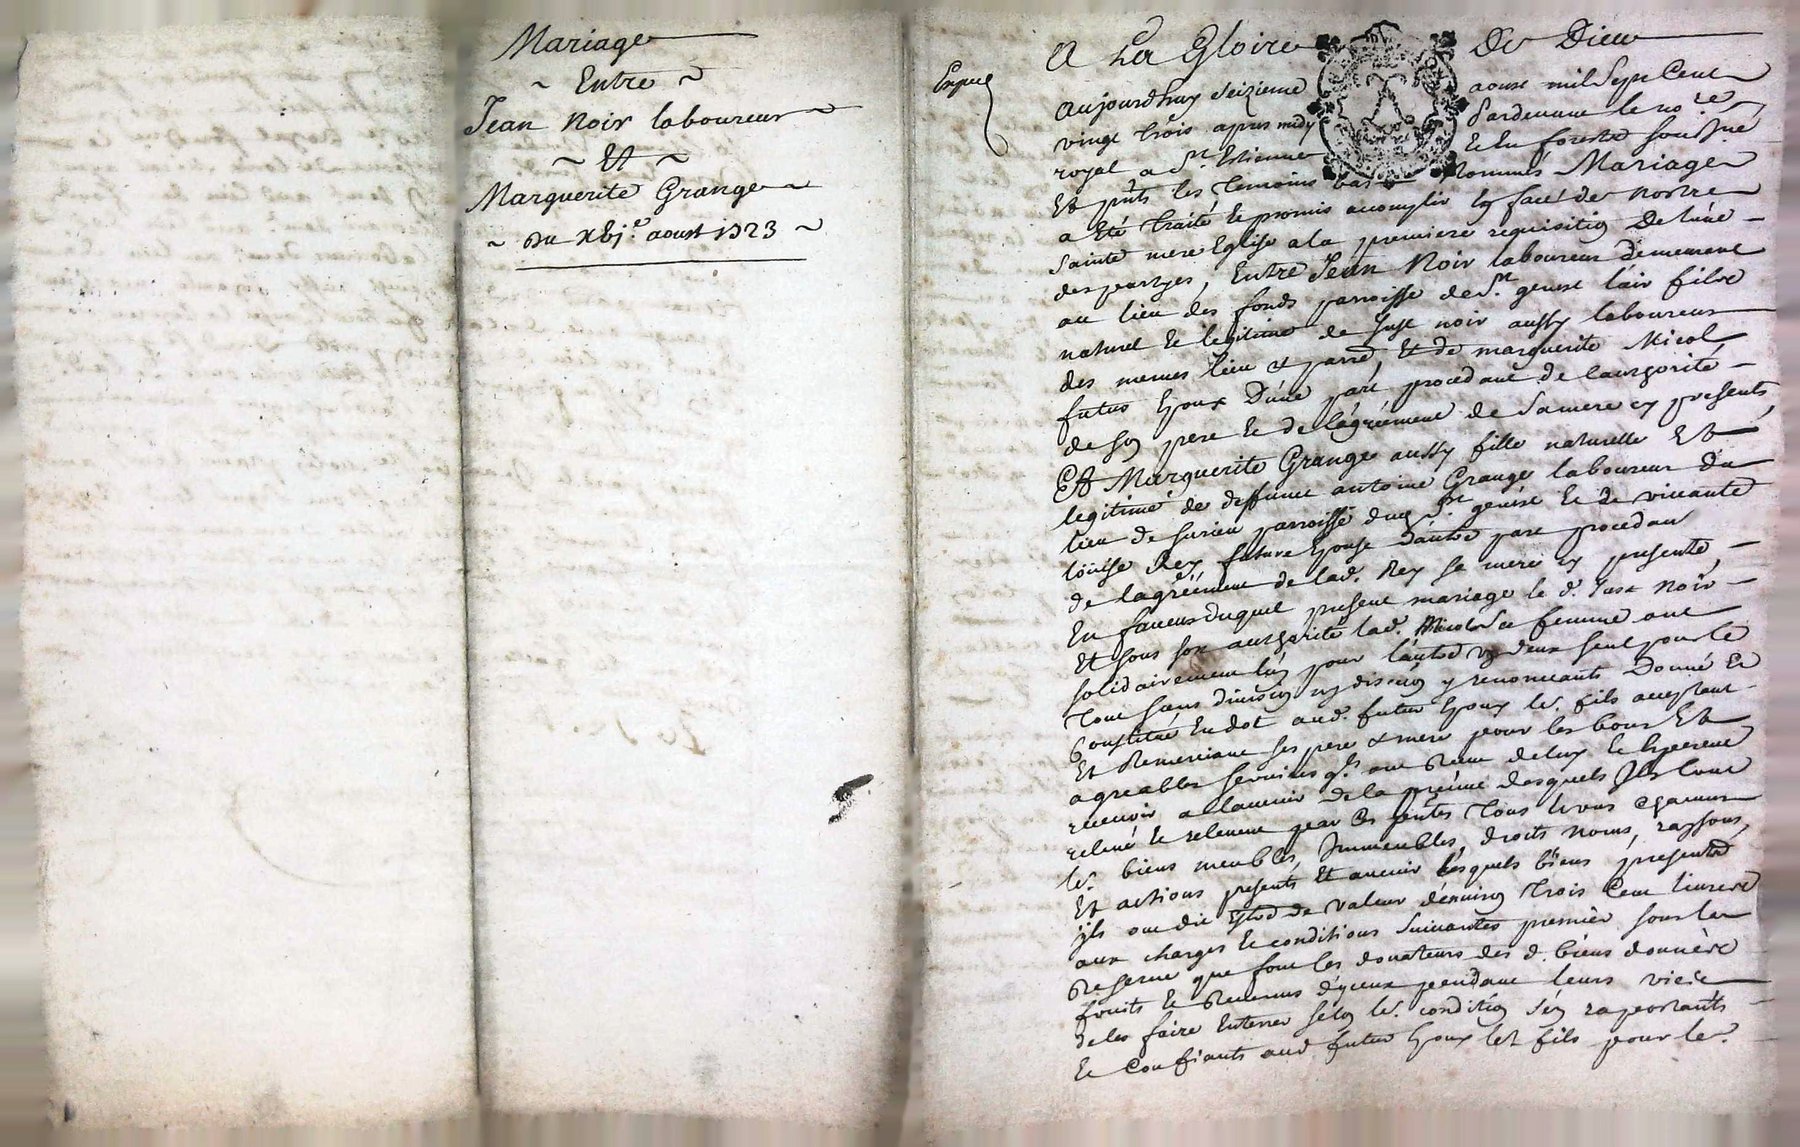 Mariage
~ Entre ~
Jean Noir laboureur
~ Et ~
Marguerite Grange
~ Du xbj.e aoust 1723 ~
Expué
A La Gloire De Dieu
aujourdhuy seizieme aoust mil Sept Cent
vingt trois apres midy Pardevant le no.re
royal a St. Estienne & en forestz soussigné
Et pnts les temoins bas nommés Mariage
a Eté traité & promis accomplir En face de nostre
Sainte mere Eglise a la premiere requisition De lune
des partyes, Entre Jean Noir laboureur demeurant
au lieu des fonds parroisse de St. genest lair fils
naturel & legitime de Just noir aussy laboureur
des memes lieu & parr.e Et de marguerite Micol
futur Epoux Dune part procedant de lauthorité
de son pere & de lagréement de sa mere cy presents,
Et Marguerite Grange aussy fille naturelle Et
legitime de deffunct antoine Grange laboureur du
lieu de surieu parroisse dud. St. genest & de vivante
loüise Rey future Epouse dautre part procedant
de lagréement de lad. Rey sa mere cy presente,
En faveur duquel present mariage le d. Just Noir
Et sous son authorité lad. Micol sa femme ont
solidairement lun pour lautre un deux seul pour le
tout sans division ny discution y renonceants Donné Et
Constitué En dot aud. futur Epoux le. fils acceptant
Et Remerciant ses pere & mere pour les bons Et
agreables services qls. ont Receu de luy & Esperent
recevoir a lavenir de la preuve desquels Ils lont
relevé & relevent par ces pntes tous Et vns chacuns
le. biens meubles, Immeubles, droits noms, raisons,
Et actions presents Et avenir lesquels biens presents
ils ont dit Estre de valeur denviron trois Cent livres
aux charges & conditions suivantes premier sous la
Reserve que font les donateurs des d. biens donnés
fruits & Revenus dyceux pendant leurs vies
de les faire Enterrer selon le. condition sen raportants
& Confiants aud. futur Epoux let fils pour le.